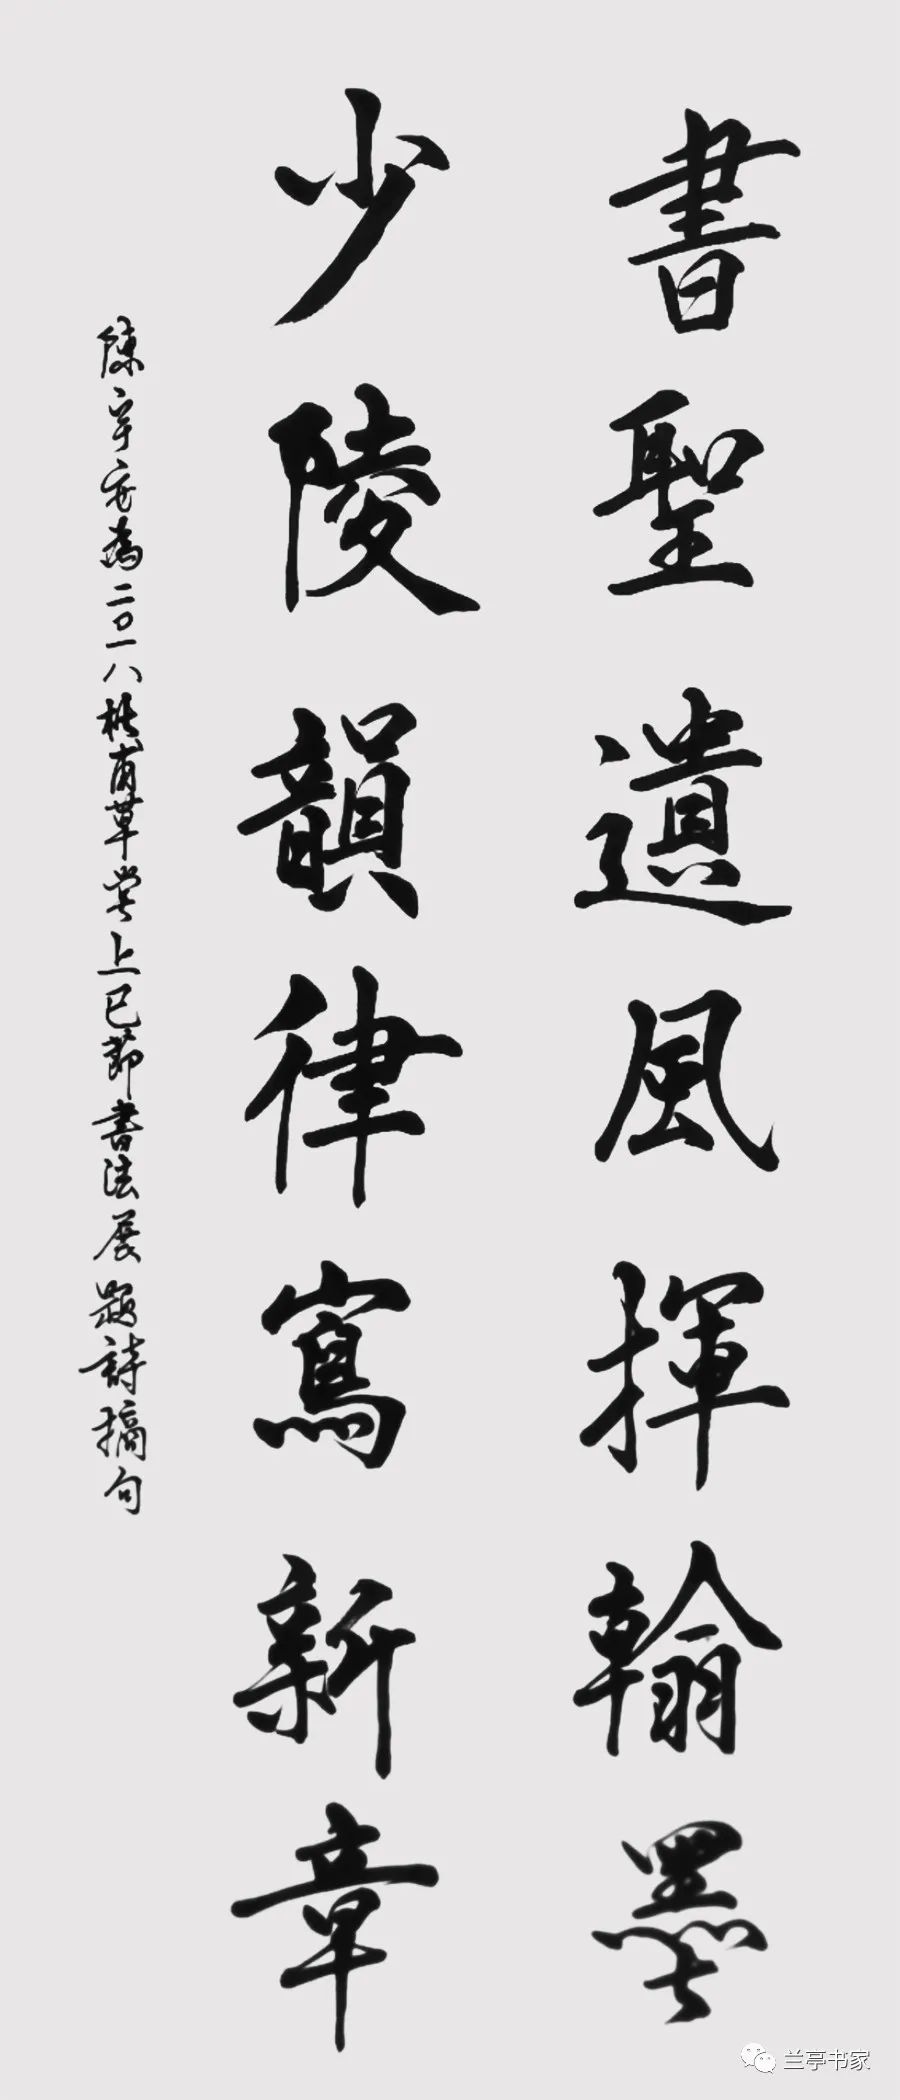 書聖遺風揮翰墨
少陵韻律寫新章
陳為二〇一八杜甫草堂上巳節書法展題詩摘句
兰亭书家